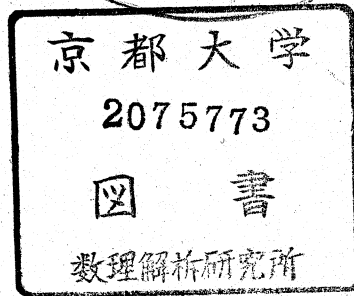 京都大学
2075773
図書
数理解析研究所